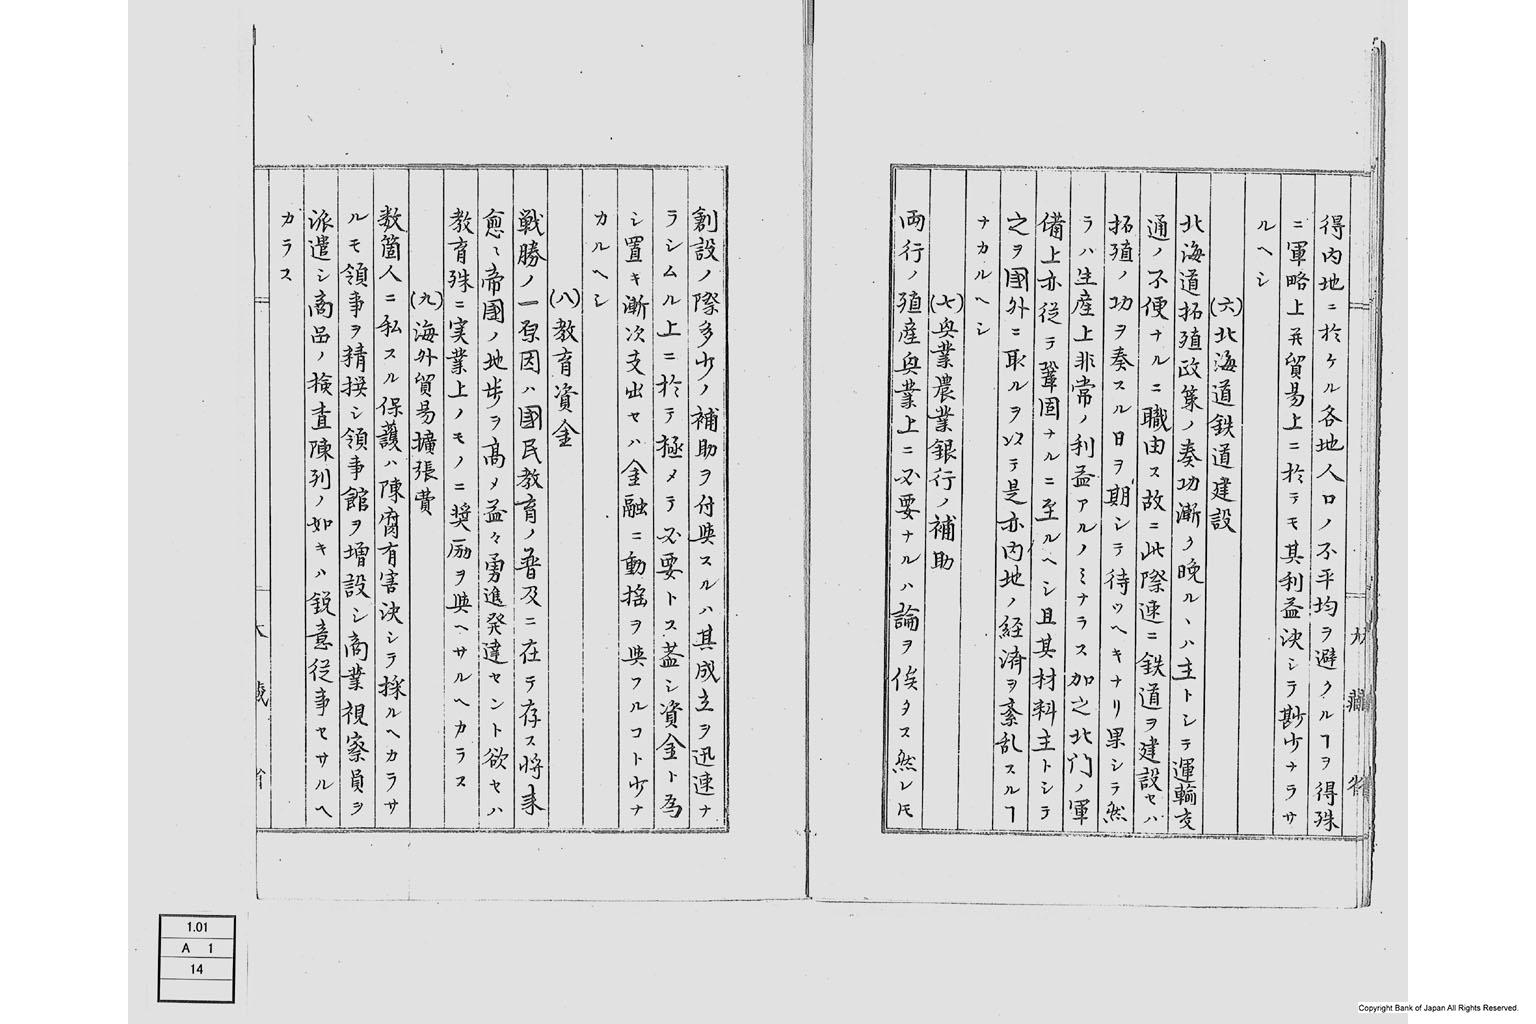 得内地ニ於ケル各地人口ノ不平均ヲ避クルヿヲ得殊
ニ軍略上并貿易上ニ於テモ其利益決シテ尠少ナラサ
ルヘシ
(六)北海道鉄道建設
北海道拓殖政策ノ奏功漸ク晩ルヽハ主トシテ運輸交
通ノ不便ナルニ職由ス故ニ此際速ニ鉄道ヲ建設セハ
拓殖ノ功ヲ奏スル日ヲ期シテ待ツヘキナリ果シテ然
ラハ生産上非常ノ利益アルノミナラス加之北門ノ軍
備上亦従テ鞏固ナルニ至ルヘシ且其材料主トシテ
之ヲ國外ニ取ルヲ以テ是亦内地ノ経済ヲ紊乱スルヿ
ナカルヘシ
(七)興業農業銀行ノ補助
両行ノ殖産興業上ニ必要ナルハ論ヲ俟タス然レ𪜈
大藏省
創設ノ際多少ノ補助ヲ付與スルハ其成立ヲ迅速ナ
ラシムル上ニ於テ極メテ必要トス蓋シ資金ト為
シ置キ漸次支出セハ金融ニ動揺ヲ與フルコト少ナ
カルヘシ
(八)教育資金
戦勝ノ一原因ハ國民教育ノ普及ニ在テ存ス将来
愈〻帝國ノ地歩ヲ高メ益々勇進発達セント欲セハ
教育殊ニ実業上ノモノニ奨励ヲ與ヘサルヘカラス
(九)海外貿易擴張費
数箇人ニ私スル保護ハ陳腐有害決シテ採ルヘカラサ
ルモ領事ヲ精撰シ領事館ヲ増設シ商業視察員ヲ
派遣シ商品ノ検査陳列ノ如キハ鋭意従事セサルヘ
カラス
大藏省
1.01
A 1
14
Copyright Bank of Japan All Rights Reserved.